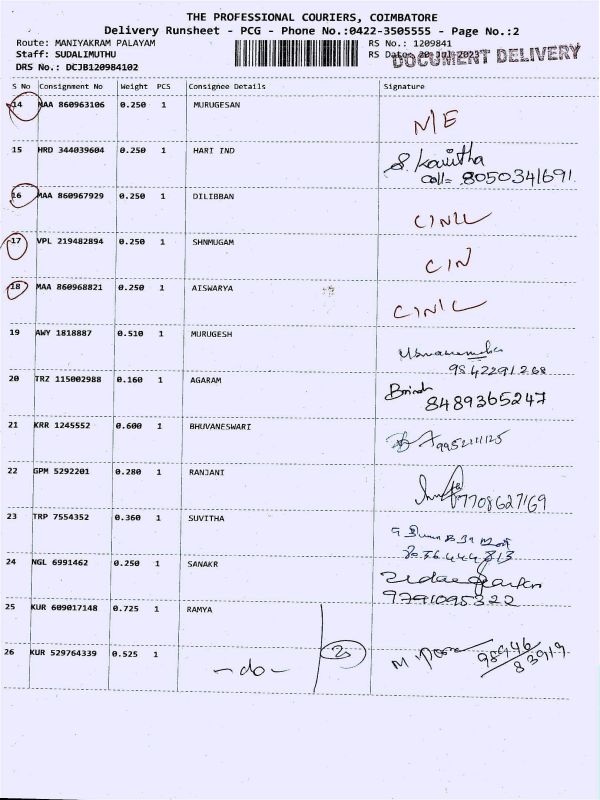 THE PROFESSIONAL COURIERS, COIMBATORE
Delivery Runsheet - PCG - Phone No.:0422-3505555 - Page No.:2
Route: MANIYAKRAM PALAYAM RS No.: 1209841
Staff: SUDALIMUTHU RS Date: 20 Jul 2023
DOCUMENT DELIVERY
DRS No.: DCJB120984102
S No Consignment No Weight PCS Consignee Details Signature
14 MAA 860963106 0.250 1 MURUGESAN N/E
15 HRD 344039604 0.250 1 HARI IND S. Kavitha
Coll= 8050341691
16 MAA 860967929 0.250 1 DILIBBAN
17 VPL 219482894 0.250 1 SHNMUGAM CIN
18 MAA 860968821 0.250 1 AISWARYA
19 AWY 1818887 0.510 1 MURUGESH
9842291268
20 TRZ 115002988 0.160 1 AGARAM
8489365247
21 KRR 1245552 0.600 1 BHUVANESWARI
22 GPM 5292201 0.280 1 RANJANI 7708627169
23 TRP 7554352 0.360 1 SUVITHA
24 NGL 6991462 0.250 1 SANAKR
9791095322
25 KUR 609017148 0.725 1 RAMYA
26 KUR 529764339 0.525 1 -do- 2 98946
83919